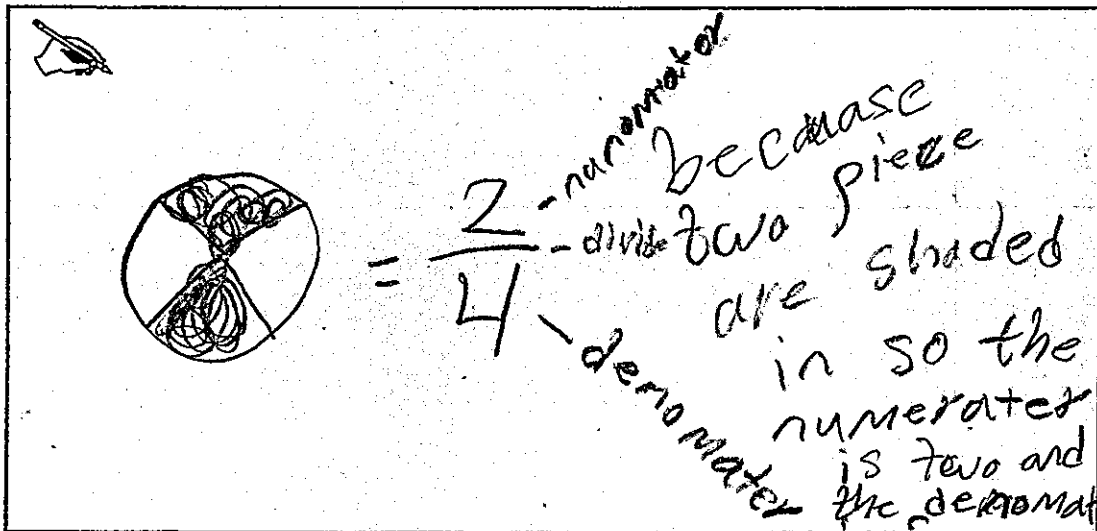 = 2/4
- nanomrator
- divide
demomater
becauase
two pieze
are shaded
in so the
numerater
is two and
the demomat